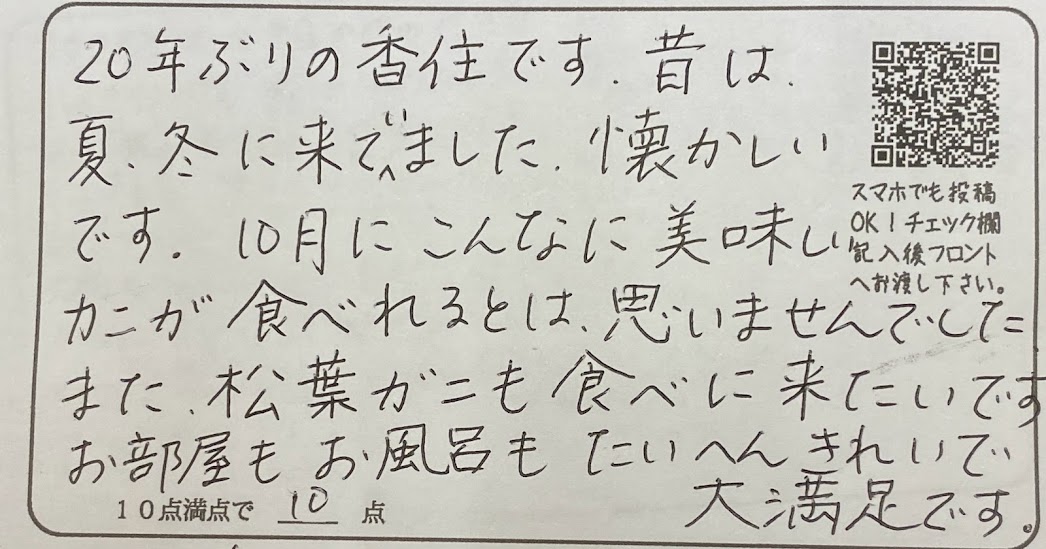 20年ぶりの香住です.昔は.
夏、冬に来でいました.懐かしい
です.10月にこんなに美味しい
カニが食べれるとは、思いませんでした
また、松葉ガニも食べに来たいです
お部屋もお風呂もたいへんきれいで
大満足です。
スマホでも投稿
OK！チェック欄
記入後フロント
へお渡し下さい。
10点満点で 10 点